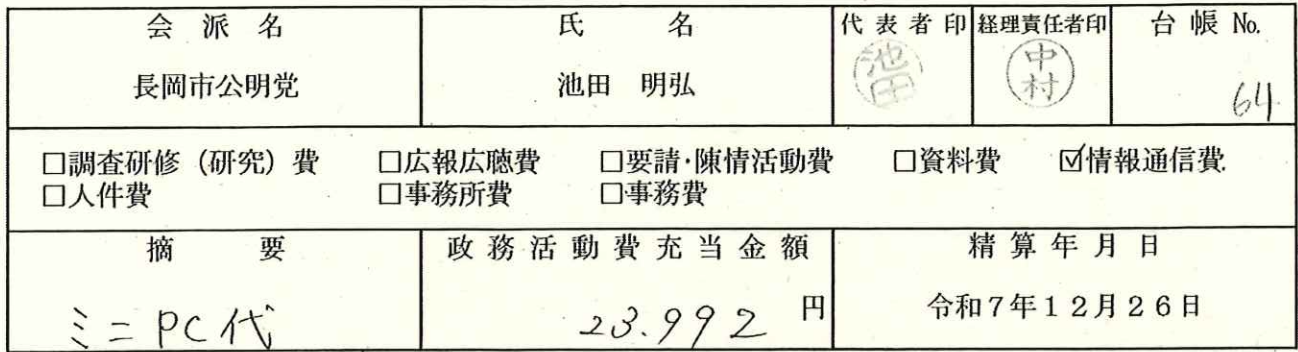 会派名 氏名 代表者印 経理責任者印 台帳No.
長岡市公明党 池田 明弘 池田 中村 64
□調査研修（研究）費 □広報広聴費 □要請・陳情活動費 □資料費 ☑情報通信費
□人件費 □事務所費 □事務費
摘要 政務活動費充当金額 精算年月日
ミニPC代 23.992 円 令和7年12月26日